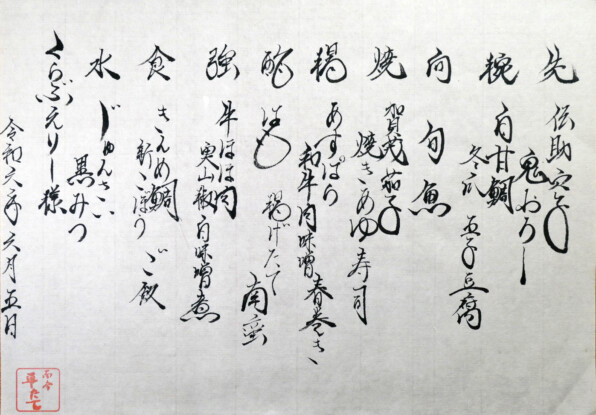 先 伝助穴子
鬼おろし
椀 白甘鯛
冬瓜 玉子豆腐
向 旬魚
焼 賀茂茄子
焼きあゆ寿司
揚 あすぱら
和牛肉味噌春巻き
酢 はも 揚げたて
南蛮
強 牛ほほ肉
実山椒白味噌煮
食 きんめ鯛 ご飯
新ごぼう
水 じゅんさい
黒みつ
くらぶえりー様
令和六年六月五日